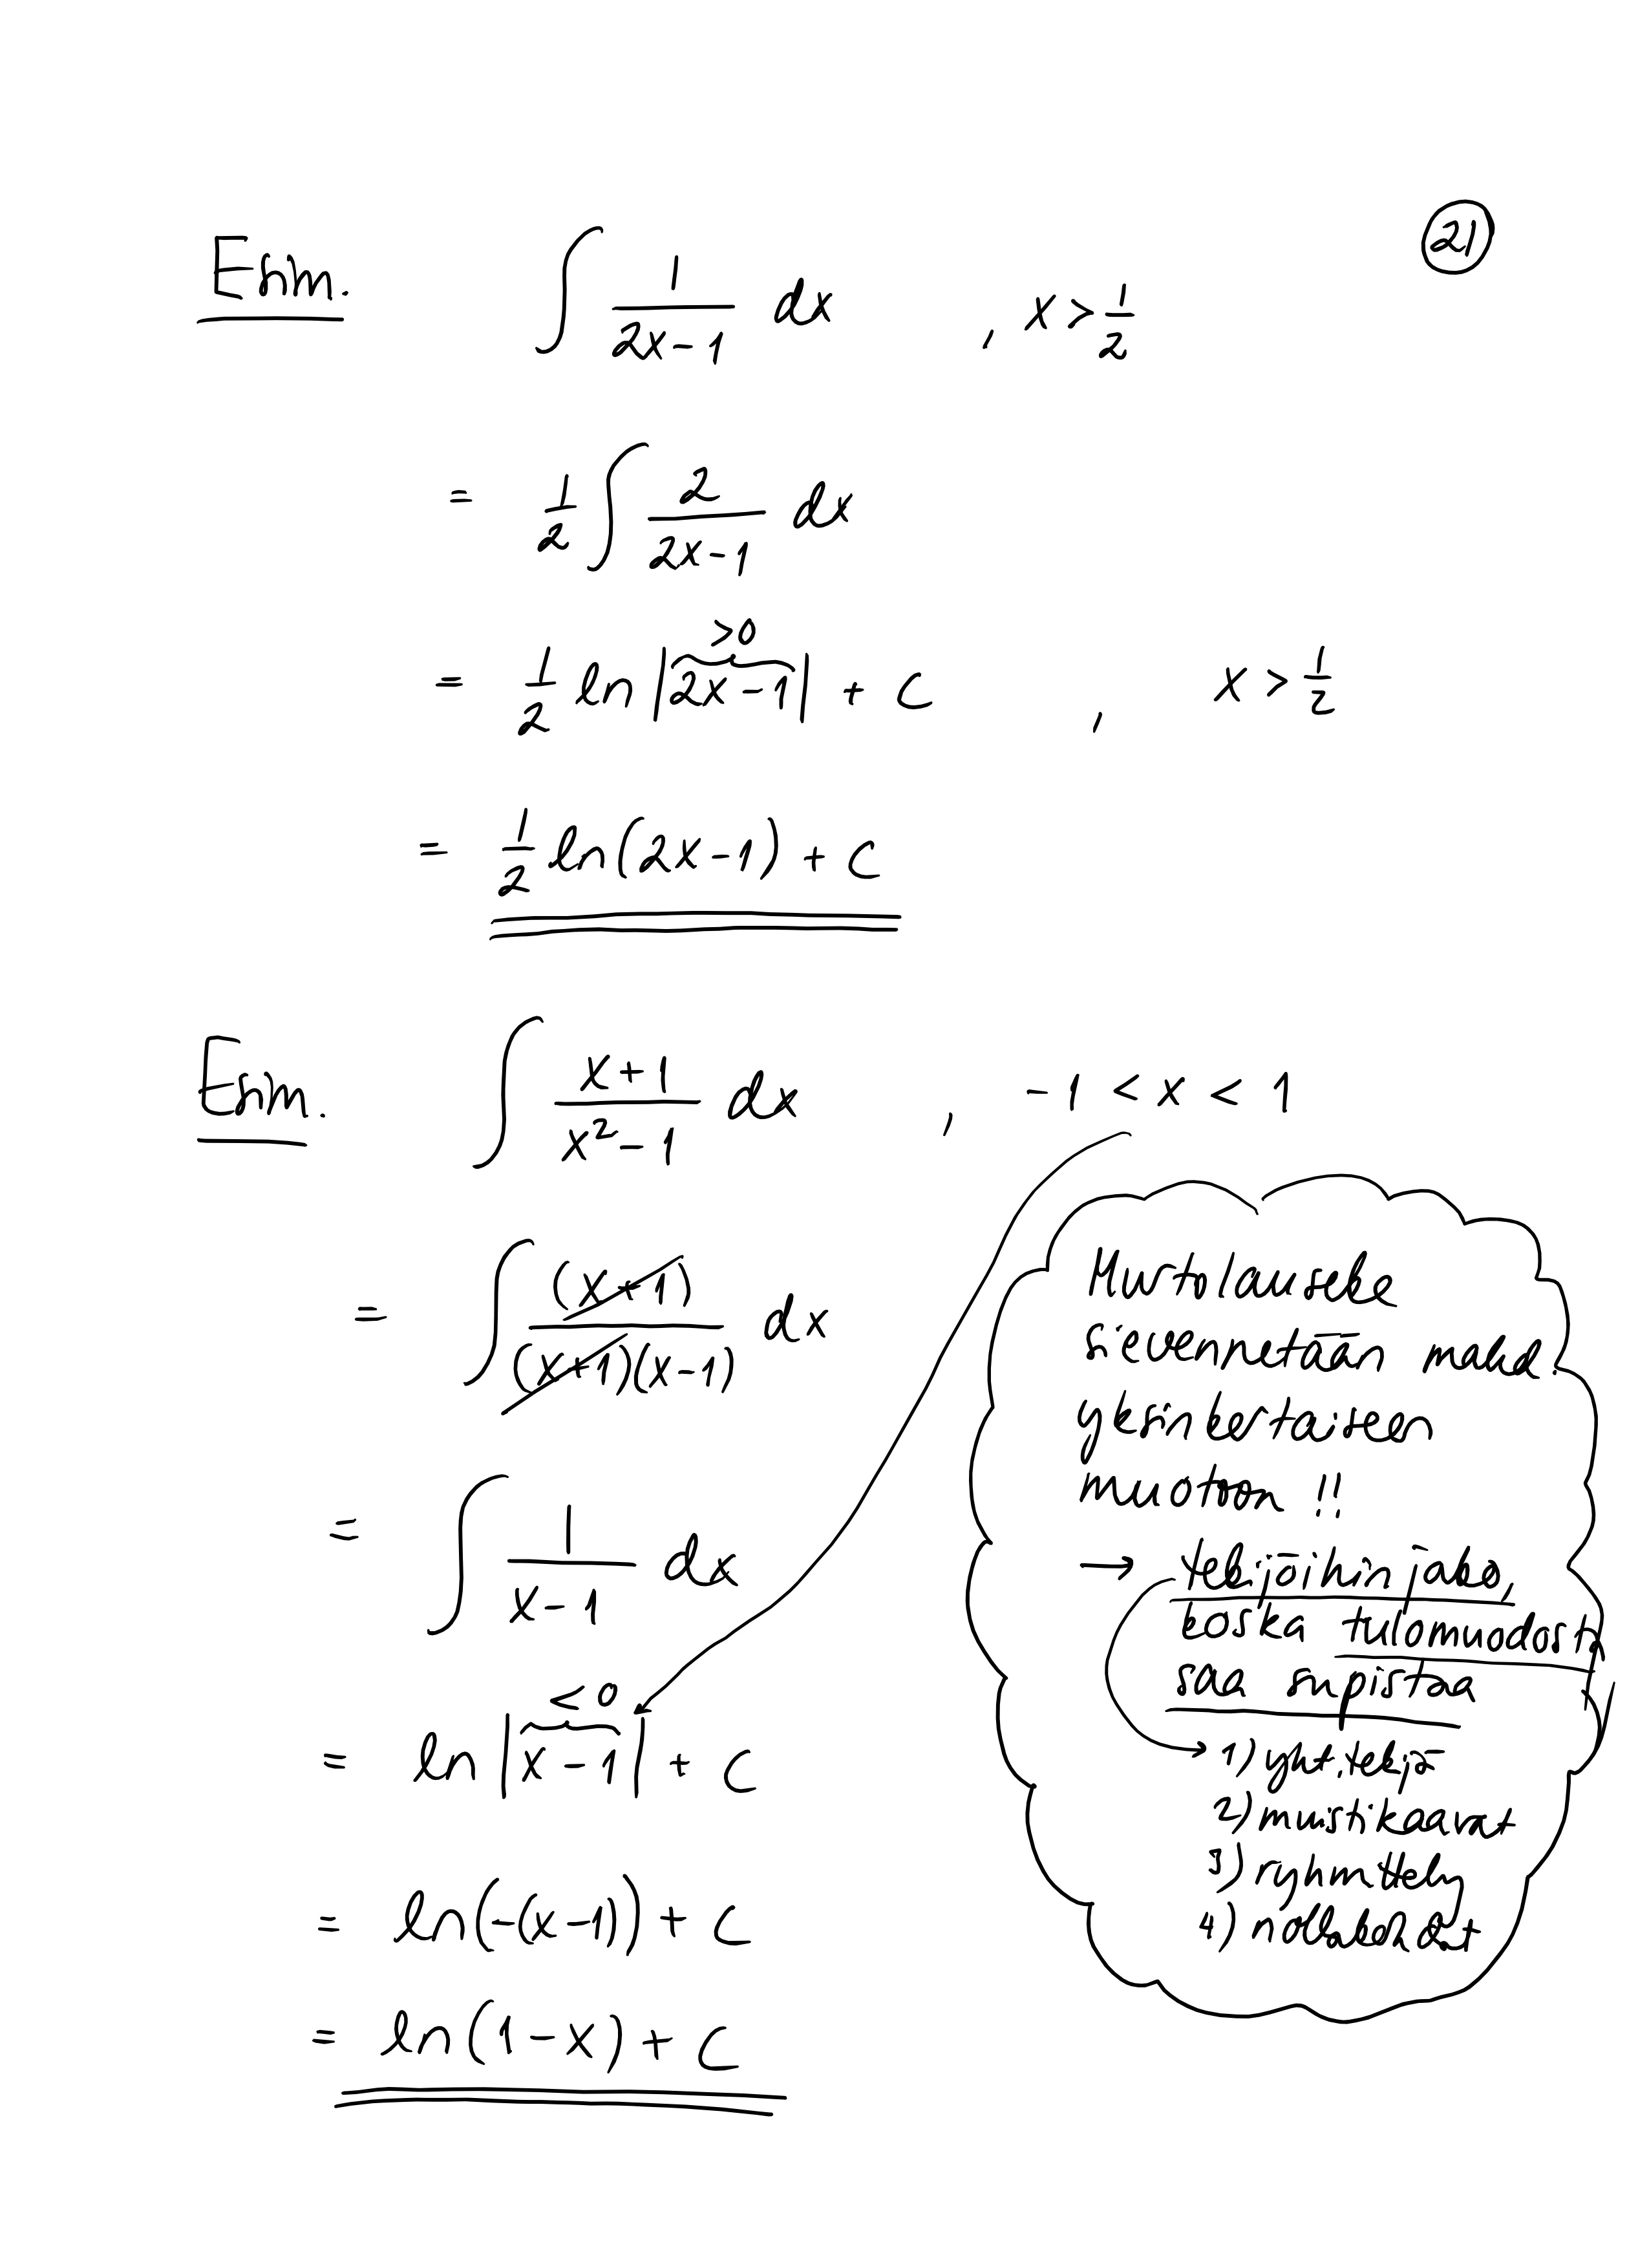 21
Esim. ∫ 1/(2x-1) dx , x > 1/2
= 1/2 ∫ 2/(2x-1) dx
>0
= 1/2 ln|2x-1| + C , x > 1/2
= 1/2 ln(2x-1) + C
Esim. ∫ (x+1)/(x²-1) dx , -1 < x < 1
= ∫ (x+1)/((x+1)(x-1)) dx
= ∫ 1/(x-1) dx
<0
= ln|x-1| + C
= ln(-(x-1)) + C
= ln(1-x) + C
Murtolauseke
sievennetään mahd.
yksinkertaiseen
muotoon !!
→ tekijöihin jako,
koska tulomuodosta
saa supistaa
1) yht. tekijä
2) muistikaavat
3) ryhmittely
4) nollakohdat